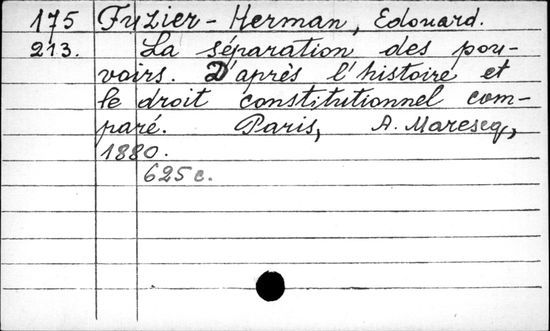 175 Fuzier-Herman, Edouard.
213. La séparation des pou-
voirs. D'après l'histoire et
le droit constitutionnel com-
paré. Paris, A. Marescq,
1880.
625 c.